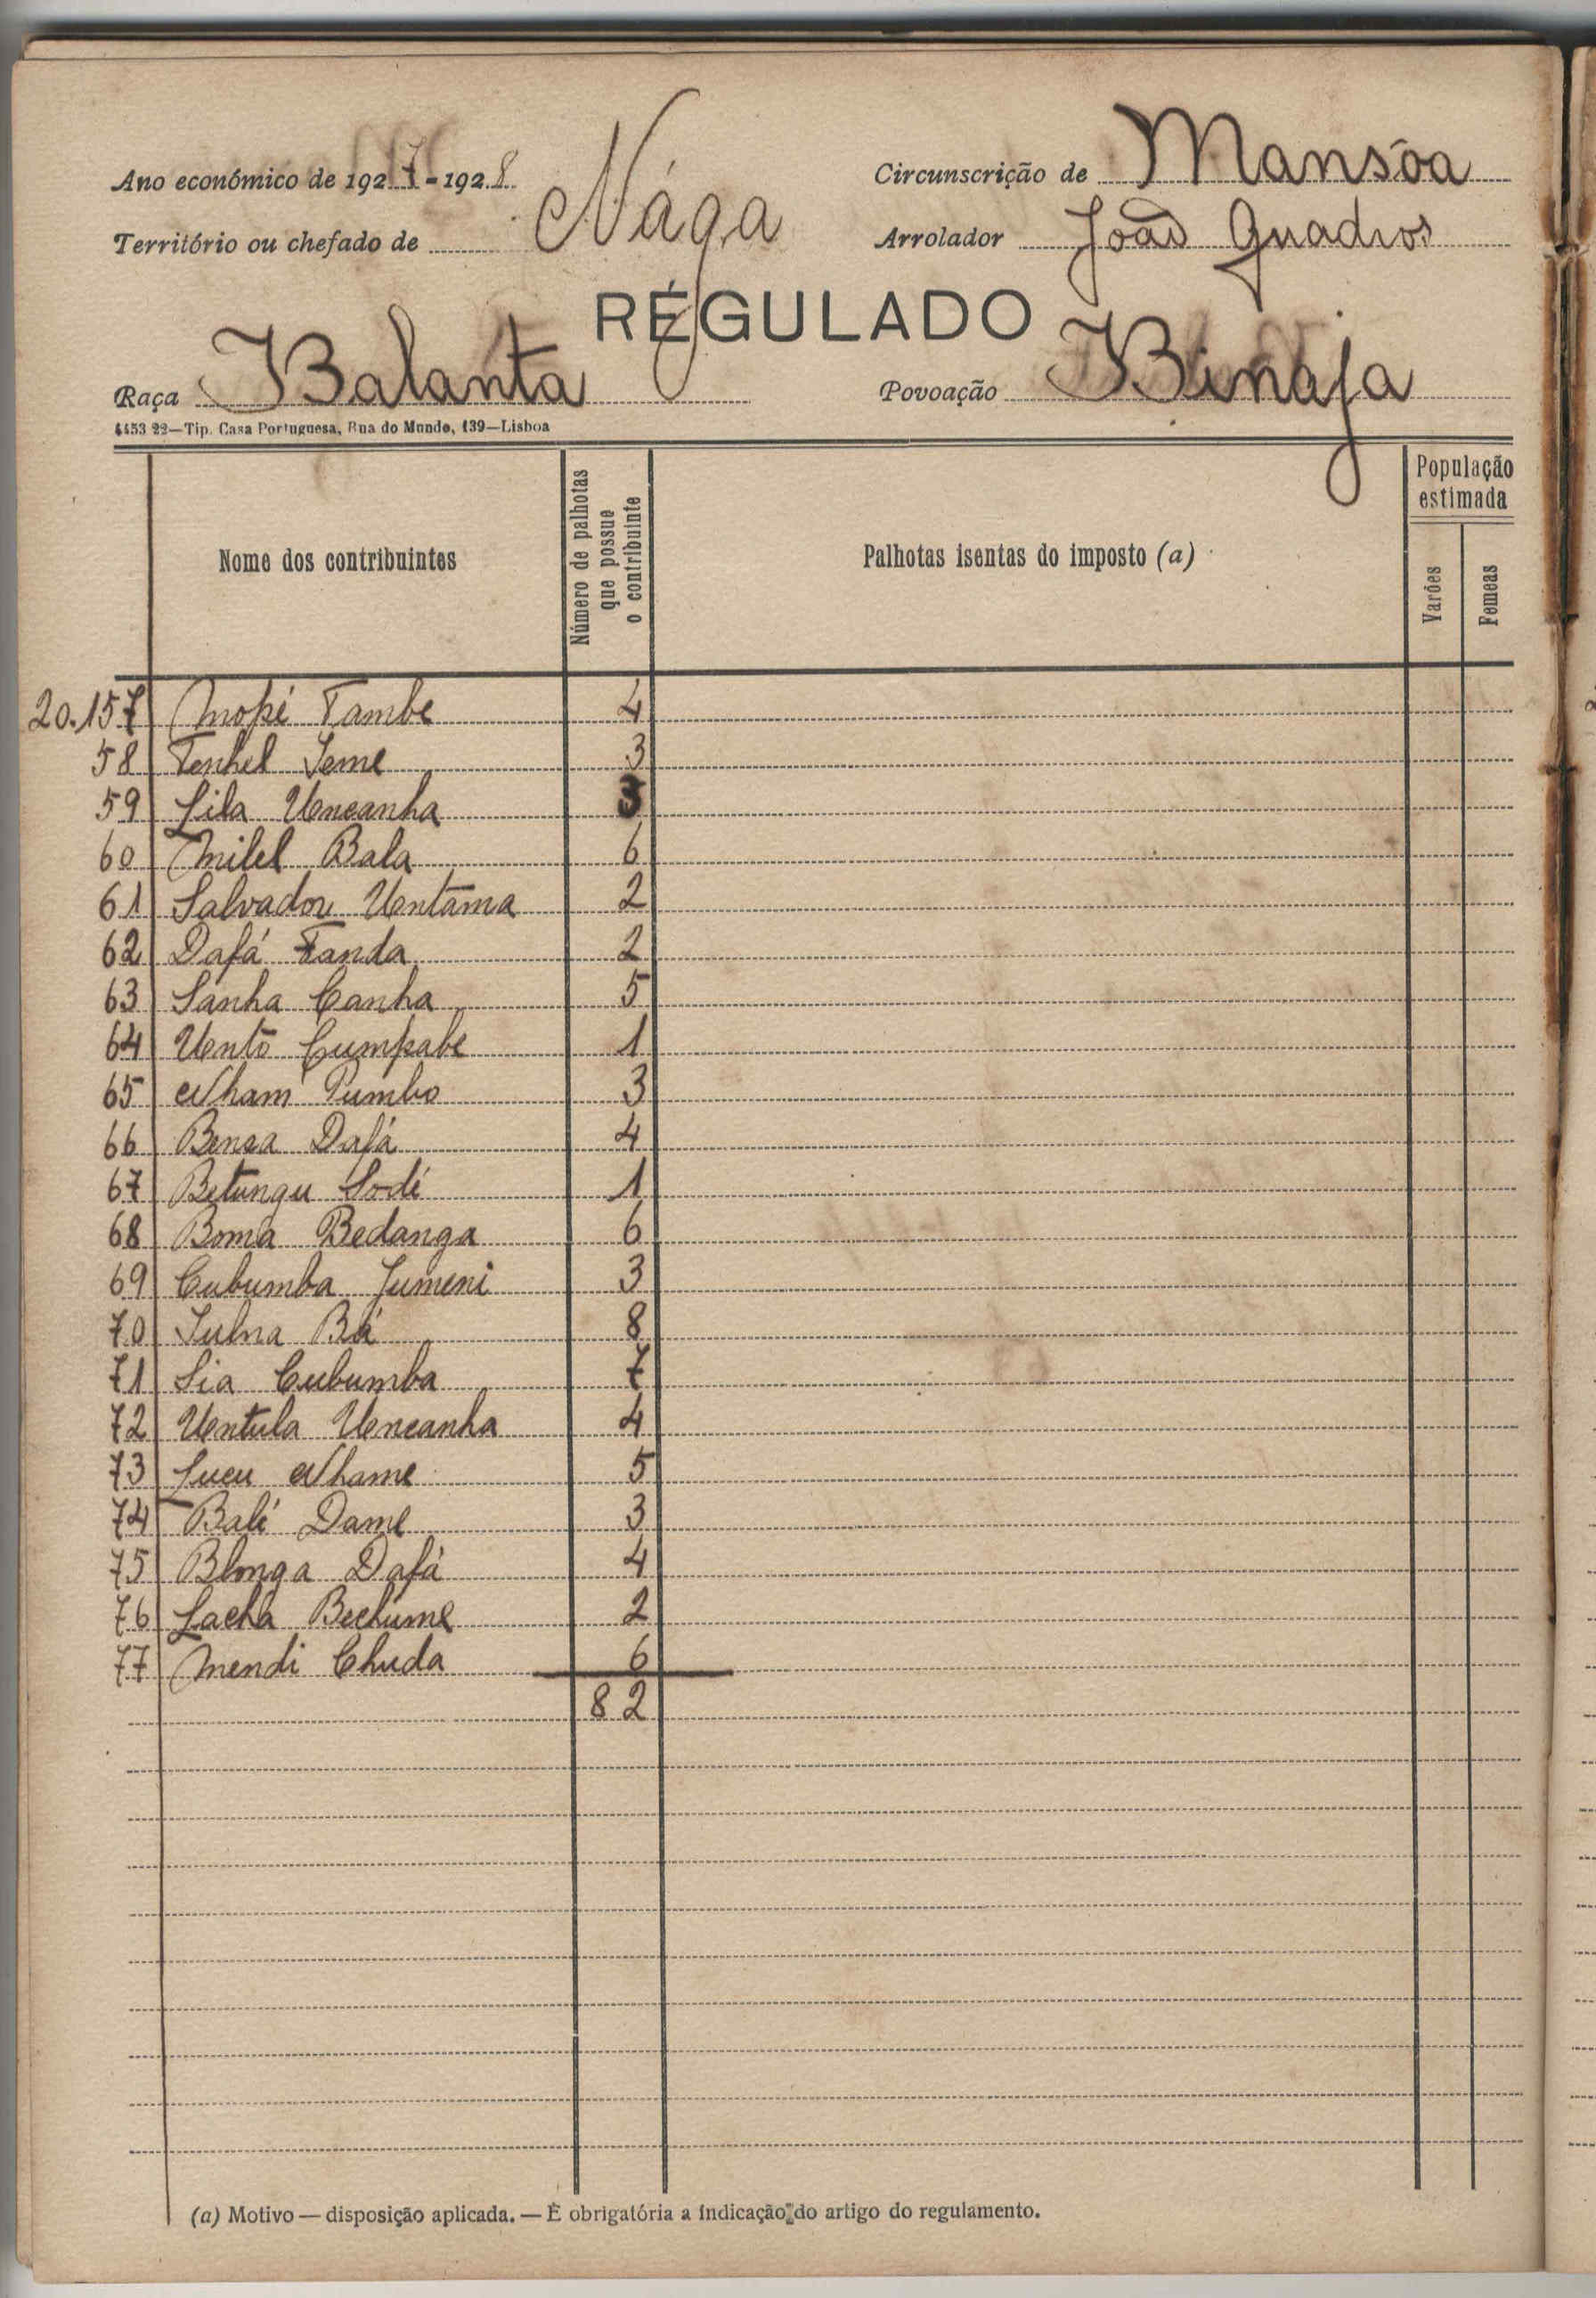 Ano económico de 1927-1928
Circunscrição de Mansôa
Território ou chefado de Nága
Arrolador João Quadros
RÉGULADO
Raça Balanta
Povoação Binaja
4453 22—Tip. Casa Portuguesa, Rua do Mundo, 139—Lisboa
Nome dos contribuintes
Número de palhotas que possue o contribuinte
Palhotas isentas do imposto (a)
População estimada
Varões
Femeas
20.157 Mopé Tambe 4
58 Tenhel Seme 3
59 Lila Uncanha 3
60 Milel Bala 6
61 Salvador Untama 2
62 Dafá Tanda 2
63 Sanha Canha 5
64 Untô Cumpabe 1
65 Nham Pumbo 3
66 Benca Dafá 4
67 Betungu Sodé 1
68 Boma Bedanga 6
69 Cubumba Jumeni 3
70 Sulna Bá 8
71 Sia Cubumba 7
72 Untula Uncanha 4
73 Lucu Nhame 5
74 Balé Dame 3
75 Blonga Dafá 4
76 Lacha Bechume 2
77 Mendi Chuda 6
82
(a) Motivo — disposição aplicada. — É obrigatória a indicação do artigo do regulamento.